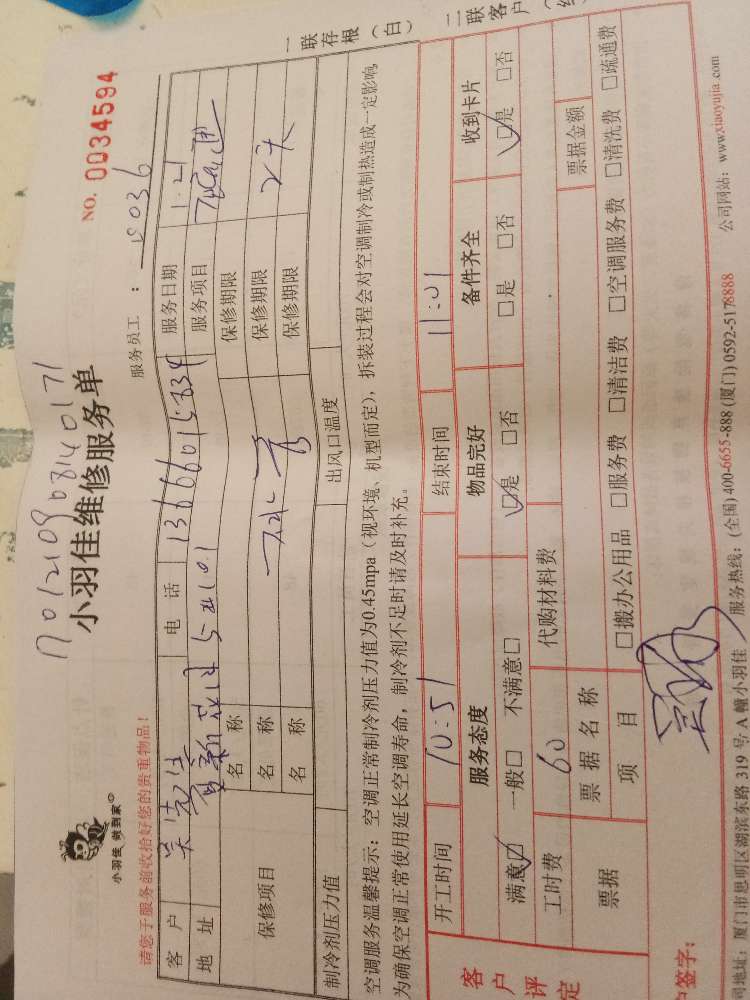 小羽佳 做到家
NO. 0034594
小羽佳维修服务单
请您于服务前收拾好您的贵重物品!
服务员工 : 036
一联存根(白)
二联客户
客户 吴先生 电话 13666015334 服务日期 1.21
地址 服务项目
保修项目 名称 保修期限
名称 保修期限 2天
名称 保修期限
制冷剂压力值 出风口温度
空调服务温馨提示: 空调正常制冷剂压力值为0.45mpa(视环境、机型而定), 拆装过程会对空调制冷或制热造成一定影响,
为确保空调正常使用延长空调寿命, 制冷剂不足时请及时补充。
客户评定
开工时间 10:51 结束时间 11:01
服务态度 物品完好 备件齐全 收到卡片
满意☑ 一般□ 不满意□ ☑是 □否 □是 □否 ☑是 □否
工时费 60 代购材料费
票据 票据名称 票据金额
项目 □搬办公用品 □服务费 □清洁费 □空调服务费 □清洗费 □疏通费
签字:
地址: 厦门市思明区湖滨东路 319 号 A 幢小羽佳 服务热线: (全国) 400-6655-888 (厦门) 0592-5178888 公司网站: www.xiaoyujia.com